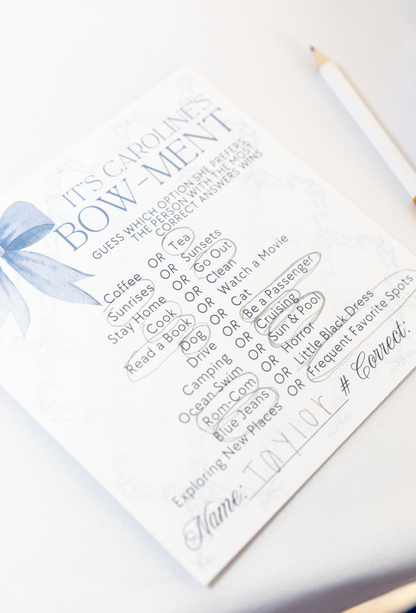 IT'S CAROLINE'S
BOW-MENT
GUESS WHICH OPTION SHE PREFERS
THE PERSON WITH THE MOST
CORRECT ANSWERS WINS
Coffee OR Tea
Sunrises OR Sunsets
Stay Home OR Go Out
Cook OR Clean
Read a Book OR Watch a Movie
Dog OR Cat
Drive OR Be a Passenger
Camping OR Cruising
Ocean Swim OR Sun & Pool
Rom-Com OR Horror
Blue Jeans OR Little Black Dress
Exploring New Places OR Frequent Favorite Spots
Name: Taylor # Correct: